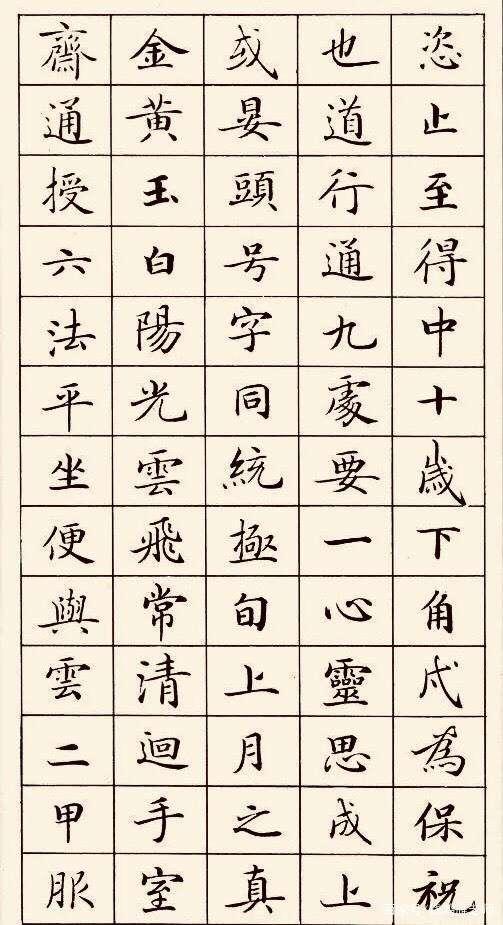 恣止至得中十歲下角戍為保祝
也道行通九處要一心靈思成上
或晏頭号字同統極旬上月之真
金黃玉白陽光雲飛常清迴手室
齋通授六法平坐便與雲二甲服